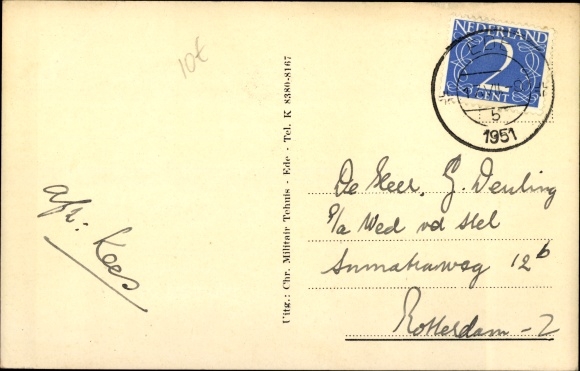 10€
NEDERLAND
2
CENT
EDE
5
1951
afz: Kees
Uitg.: Chr. Militair Tehuis - Ede - Tel. K 8380-8167
De Heer, G. Deuling
P/a Wed vd Stel
Sumatraweg 12b
Rotterdam - Z